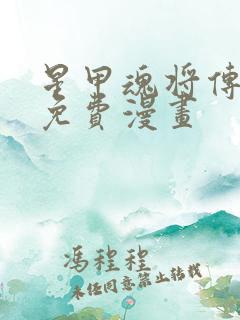 星甲魂将傳
免費漫畫
馮程程
未经同意禁止转载